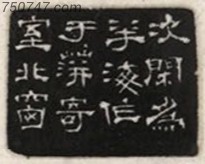 750747.com
次閑為
半海作
于蓱寄
室北窗